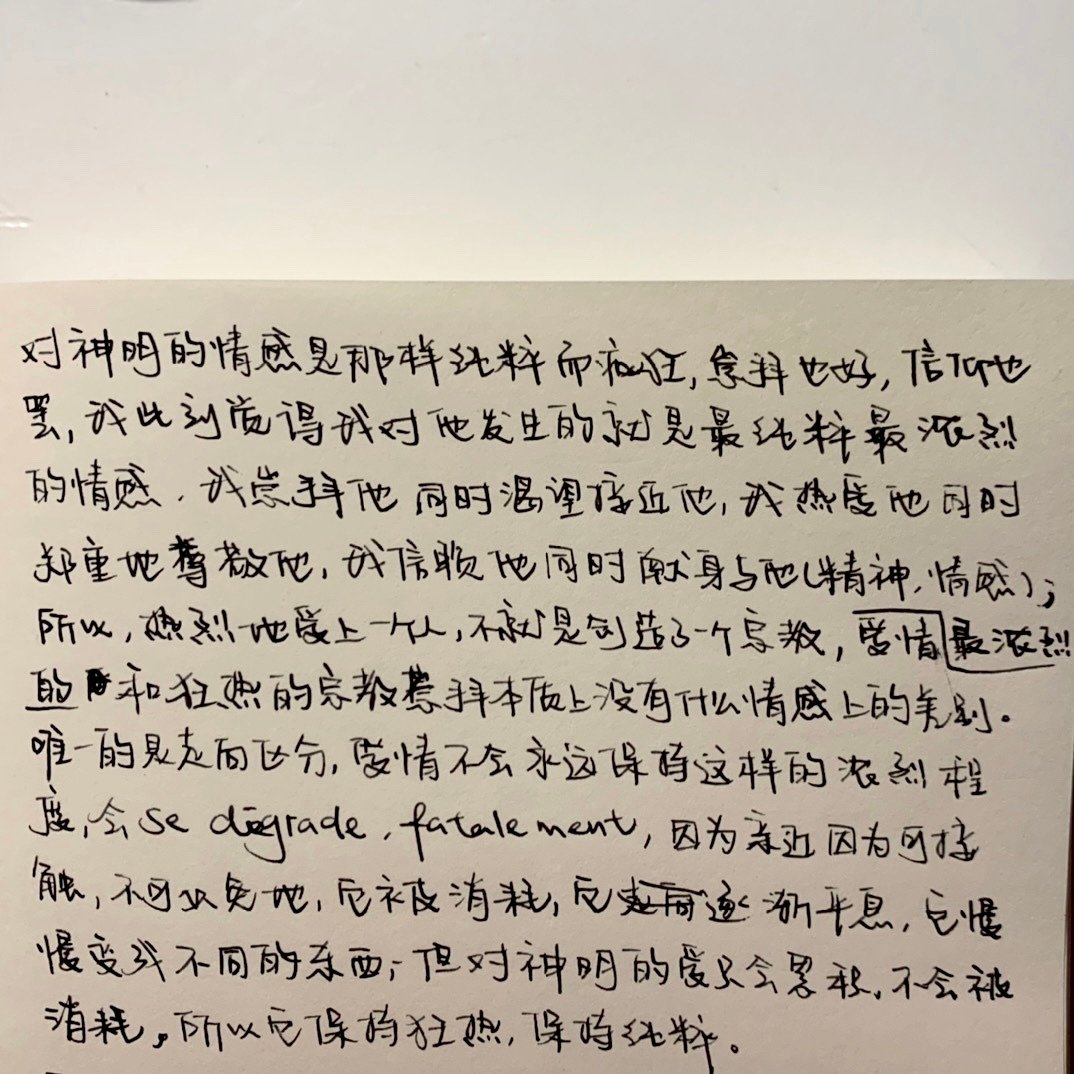 对神明的情感是那样纯粹而疯狂，崇拜也好，信仰也
罢，我此刻觉得我对他发生的就是最纯粹最浓烈
的情感。我崇拜他同时渴望接近他，我热爱他同时
郑重地尊敬他，我信赖他同时献身与他（精神，情感）；
所以，热烈地爱上一个人，不就是创造了一个宗教，爱情最浓烈
的和狂热的宗教崇拜本质上没有什么情感上的差别。
唯一的是走向区分，爱情不会永远保持这样的浓烈程
度，会 se dégrade, fatalement，因为亲近因为可接
触，不可以免地，它被消耗，它逐渐平息，它慢
慢变成不同的东西；但对神明的爱只会累积，不会被
消耗。所以它保持狂热，保持纯粹。